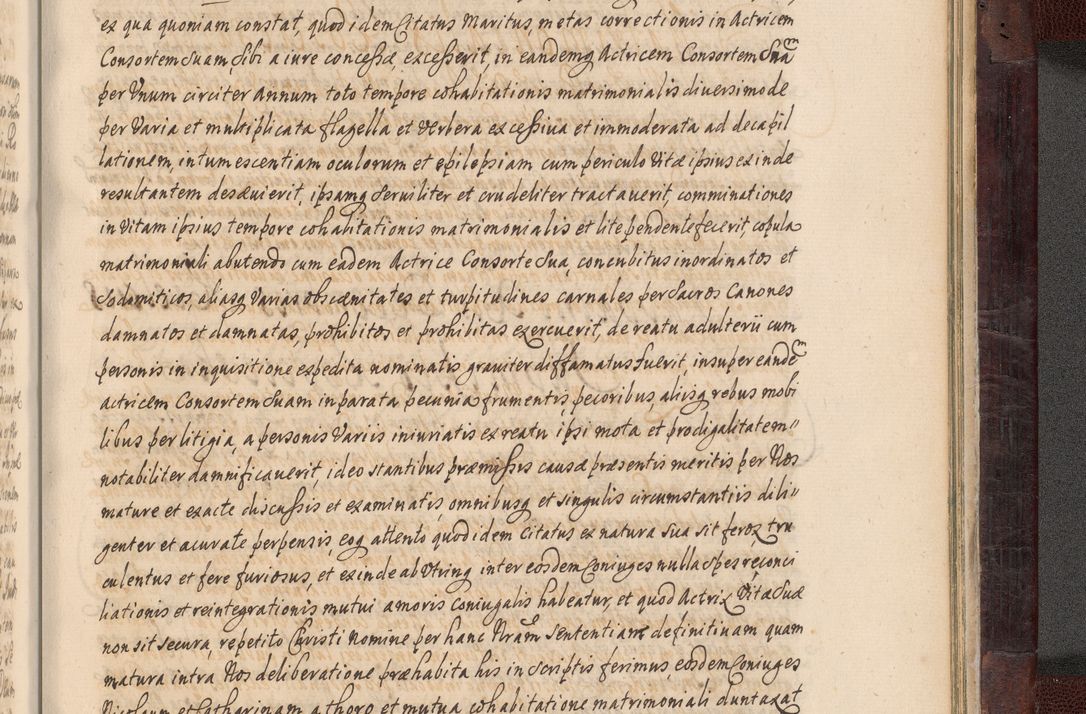 ex qua quoniam constat, quod idem Citatus Maritus, metas correctionis in Actricem
Consortem Suam, Sibi a iure concessæ, excesserit, in eandemq Actricem Consortem Suã
per Vnum circiter Annum toto tempore cohabitationis matrimonialis diuersimode
per Varia et multiplicata flagella et Verbera excessiua et immoderata ad decapil
lationem, intumescentiam oculorum et epilepsiam cum periculo Vitæ ipsius exinde
resultantem desæuierit, ipsamq Seruiliter et crudeliter tractauerit, comminationes
in Vitam ipsius tempore cohabitationis matrimonialis et lite pendente fecerit, copula
matrimoniali abutendo cum eadem Actrice Consorte Sua, concubitus inordinatos et
Sodomiticos, aliasq Varias obscænitates et turpitudines carnales per Sacros Canones
damnatos et damnatas, prohibitos et prohibitas exercuerit, de reatu adulterii cum
personis in inquisitione expedita nominatis grauiter diffamatus fuerit, insuper eandẽ
actricem Consortem Suam in parata pecunia frumentis, pecoribus, aliisq rebus mobi
libus per litigia, a personis Variis iniuriatis ex reatu ipsi mota et prodigalitatem
notabiliter damnificauerit, ideo stantibus præmissis causæ præsentis meritis per Nos
mature et exacte discussis et examinatis, omnibusq et singulis circumstantiis dili
genter et acurate perpensis, eoq attento quod idem Citatus ex natura Sua sit ferox, tru
culentus et fere furiosus, et exinde ab Vtrinq inter eosdem Coniuges nulla Spes reconci
liationis et reintegrationis mutui amoris Coniugalis habeatur, et quod Actrix Vitæ Suæ
non sit secura, repetito Christi Nomine per hanc Nram Sententiam definitiuam quam
matura intra Nos deliberatione præhabita his in Scriptis ferimus, eosdem Coniuges
Nicolaum et Catharinam a thoro et mutua cohabitatione matrimoniali duntaxat